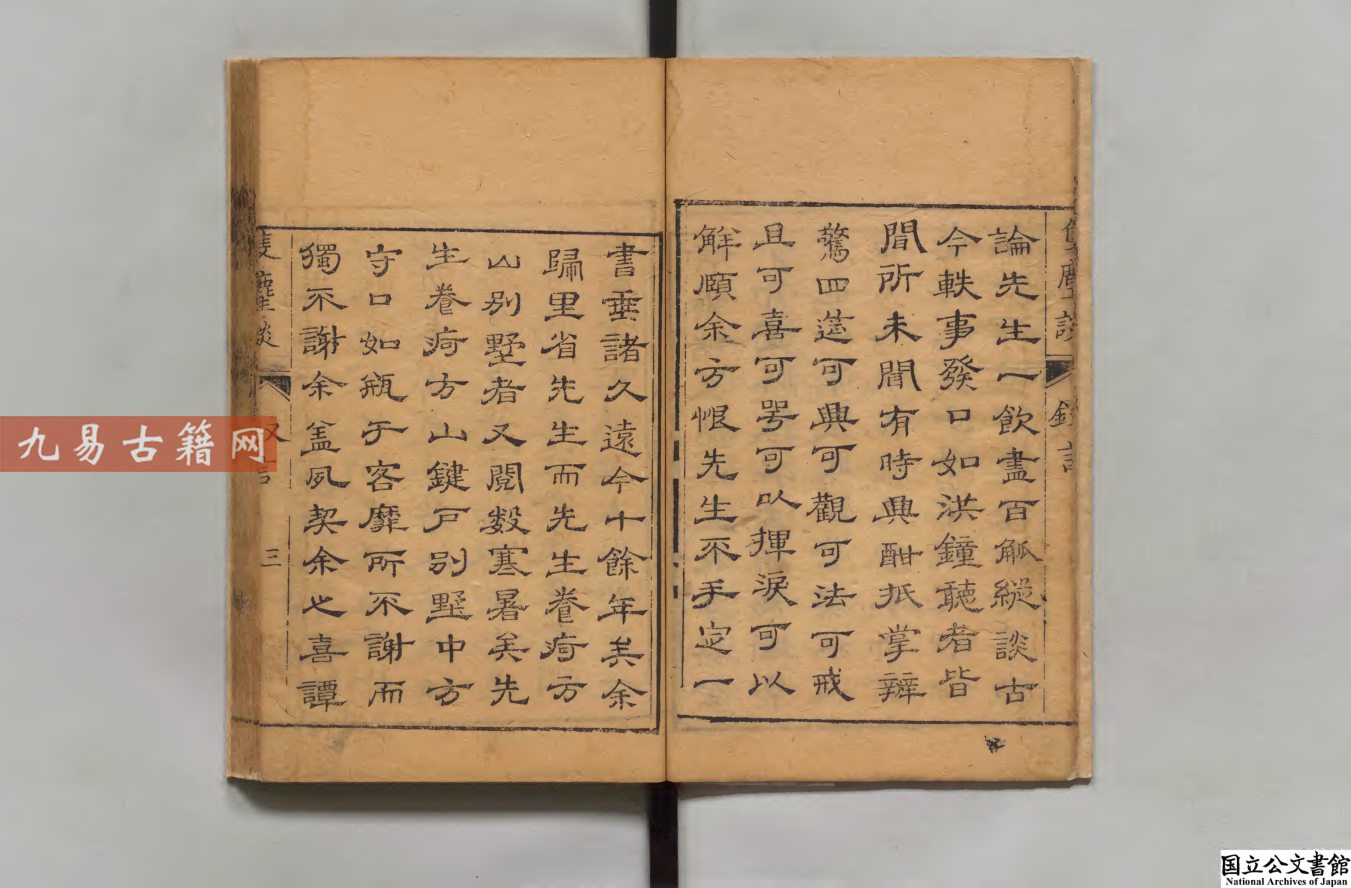 論先生一飲盡百觚縱談古
今軼事發口如洪鐘聽者皆
聞所未聞有時興酣抵掌辯
驚四筵可興可觀可法可戒
且可喜可咢可以揮淚可以
解頤余方恨先生不手定一
書垂諸久遠今十餘年矣余
歸里省先生而先生養疴方
山別墅者又閱數寒暑矣先
生養疴方山鍵戶別墅中方
守口如瓶于客靡所不謝而
獨不謝余盖夙契余之喜譚
雙麈談
三
九易古籍网
国立公文書館
National Archives of Japan